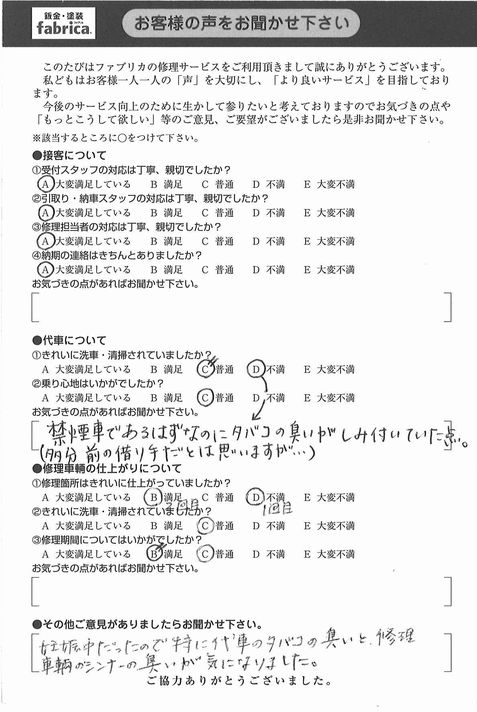 鈑金・塗装
fabrica.
お客様の声をお聞かせ下さい
このたびはファブリカの修理サービスをご利用頂きまして誠にありがとうございます。
私どもはお客様一人一人の「声」を大切にし、「より良いサービス」を目指しており
ます。
今後のサービス向上のために生かして参りたいと考えておりますのでお気づきの点や
「もっとこうして欲しい」等のご意見、ご要望がございましたら是非お聞かせ下さい。
※該当するところに〇をつけて下さい。
●接客について
①受付スタッフの対応は丁寧、親切でしたか？
A 大変満足している B 満足 C 普通 D 不満 E 大変不満
②引取り・納車スタッフの対応は丁寧、親切でしたか？
A 大変満足している B 満足 C 普通 D 不満 E 大変不満
③修理担当者の対応は丁寧、親切でしたか？
A 大変満足している B 満足 C 普通 D 不満 E 大変不満
④納期の連絡はきちんとありましたか？
A 大変満足している B 満足 C 普通 D 不満 E 大変不満
お気づきの点があればお聞かせ下さい。
●代車について
①きれいに洗車・清掃されていましたか？
A 大変満足している B 満足 C 普通 D 不満 E 大変不満
②乗り心地はいかがでしたか？
A 大変満足している B 満足 C 普通 D 不満 E 大変不満
お気づきの点があればお聞かせ下さい。
禁煙車であるはずなのにタバコの臭いがしみ付いていた点。
(多分前の借り手だとは思いますが…)
●修理車輌の仕上がりについて
①修理箇所はきれいに仕上がっていましたか？
A 大変満足している B 満足 C 普通 D 不満 E 大変不満
2回目 1回目
②きれいに洗車・清掃されていましたか？
A 大変満足している B 満足 C 普通 D 不満 E 大変不満
③修理期間についてはいかがでしたか？
A 大変満足している B 満足 C 普通 D 不満 E 大変不満
お気づきの点があればお聞かせ下さい。
●その他ご意見がありましたらお聞かせ下さい。
妊娠中だったので特に代車のタバコの臭いと、修理
車輌のシンナーの臭いが気になりました。
ご協力ありがとうございました。